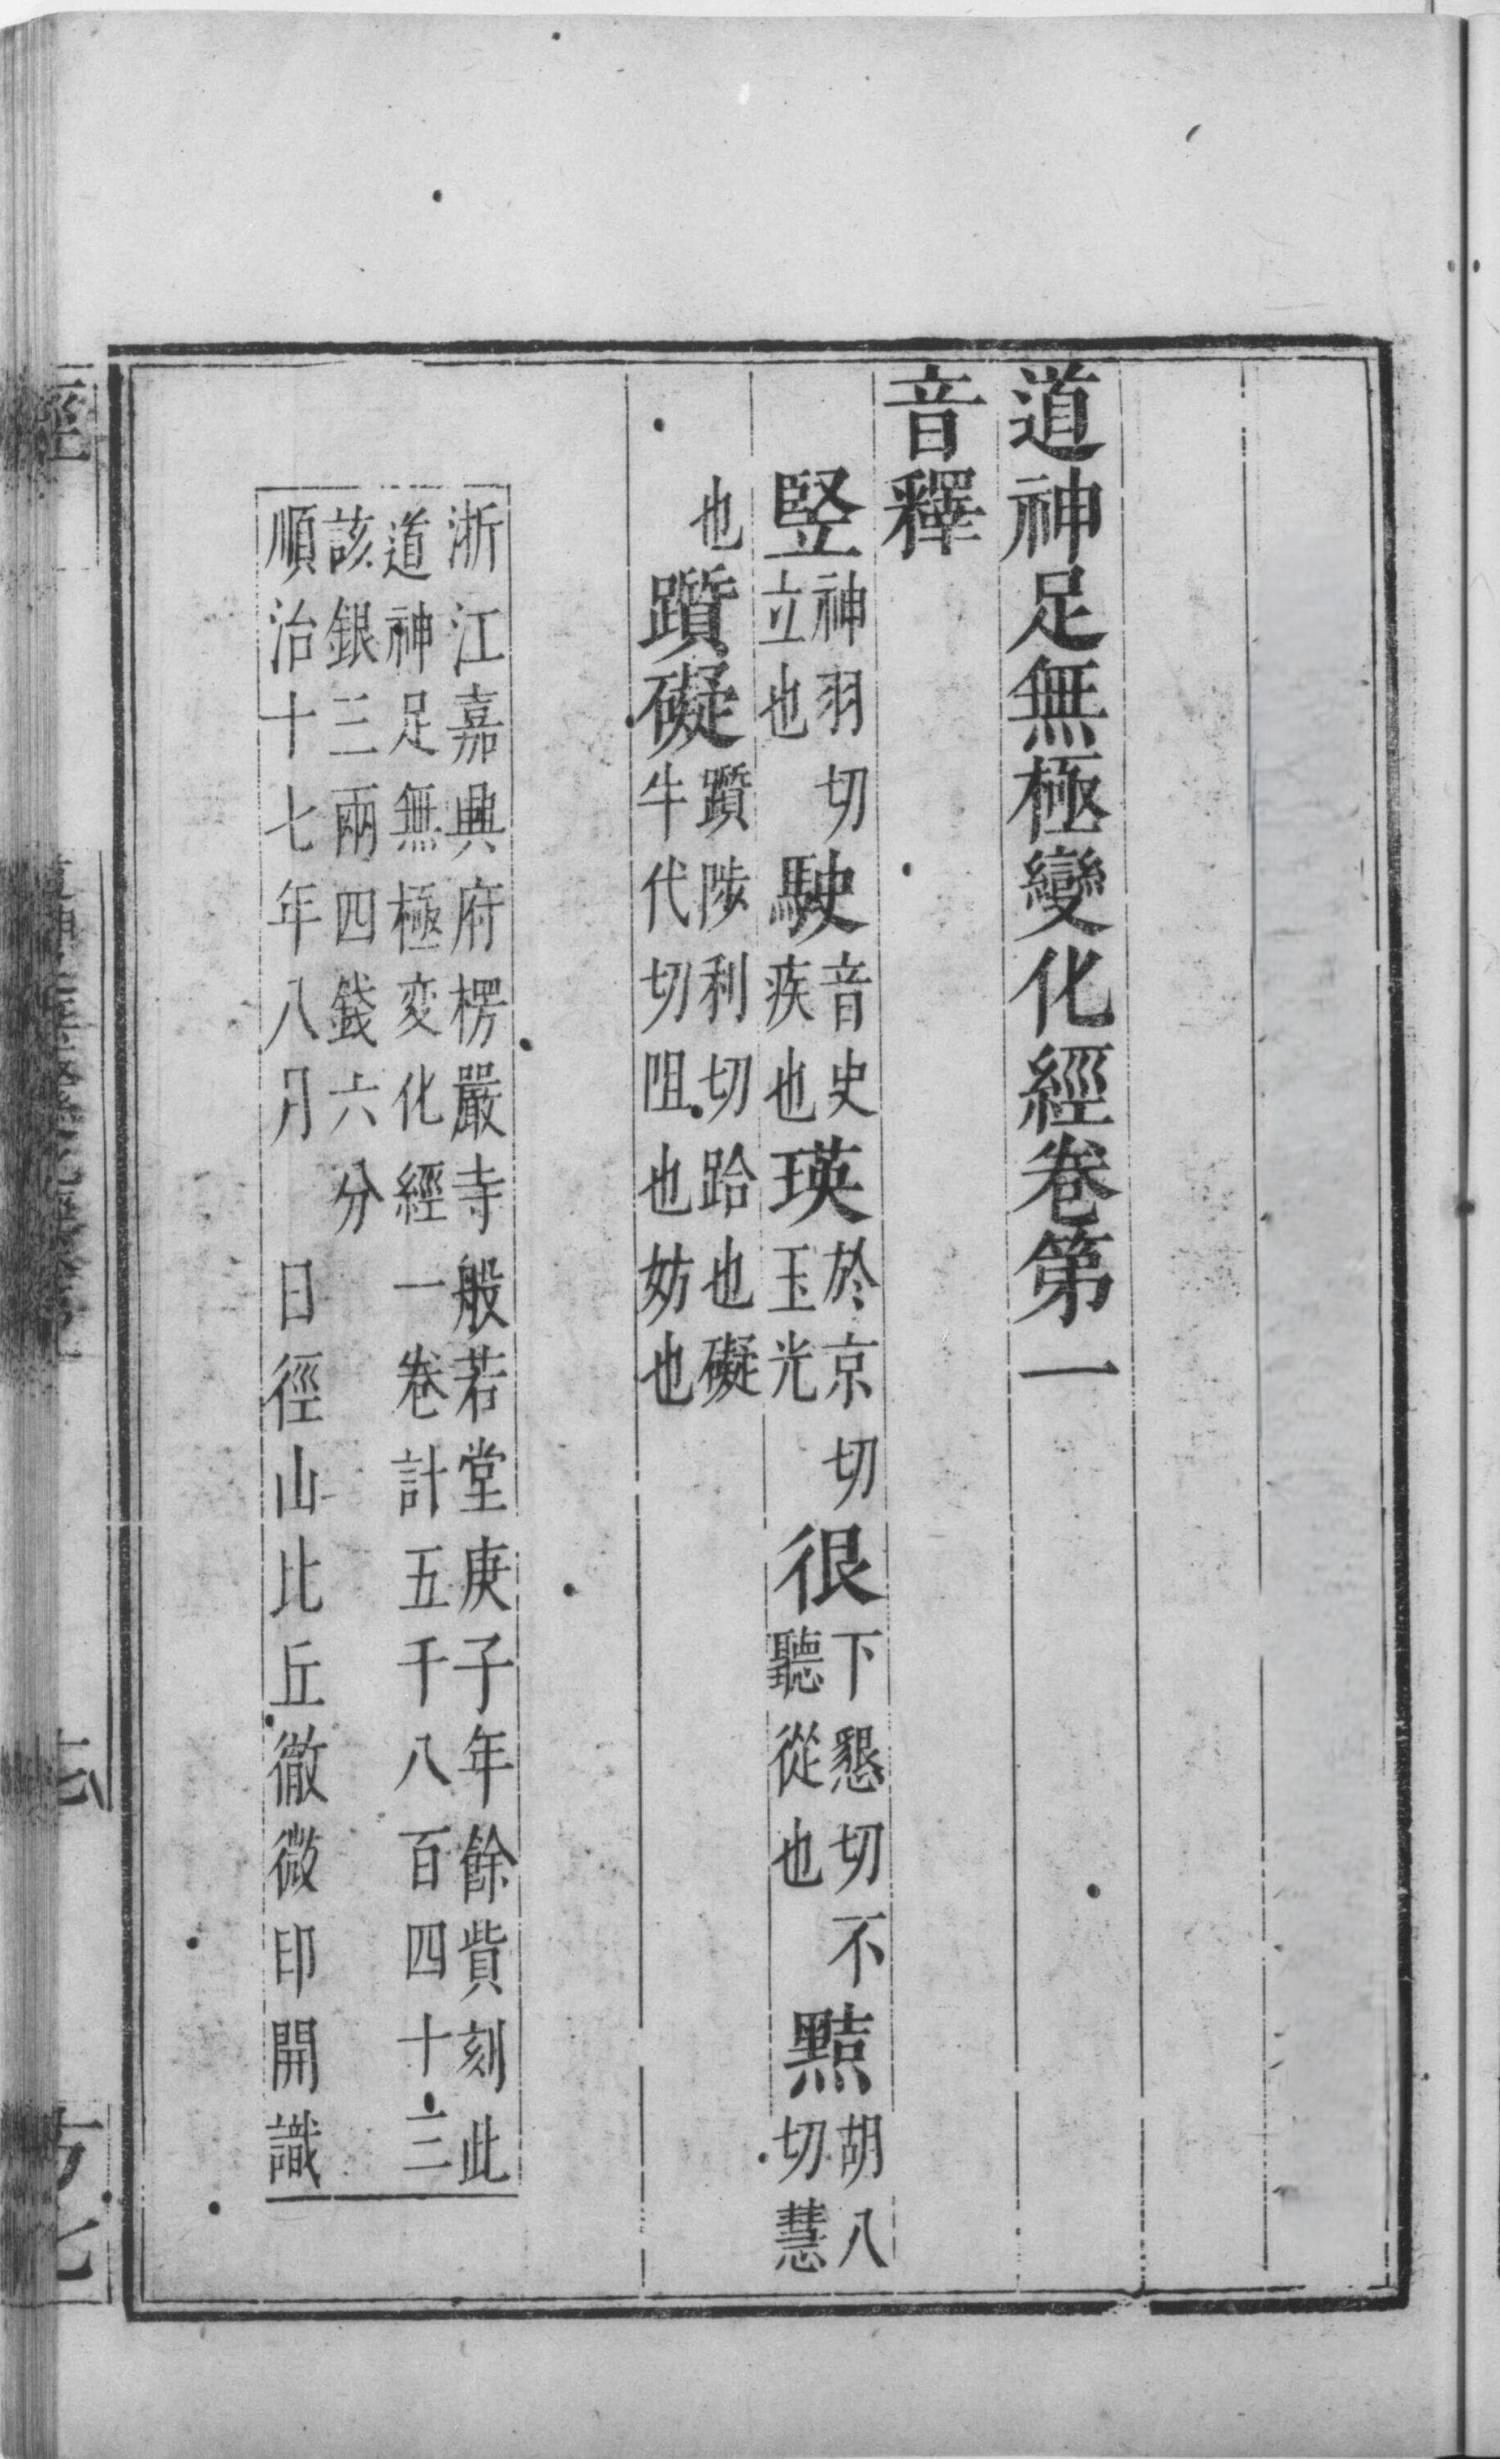 道神足無極變化經卷第一
音釋
竪神羽切立也 駛音史疾也 瑛於京切玉光 很下懇切不聽從也 黠胡八切慧
也 躓礙躓陟利切跲也礙牛代切阻也妨也
浙江嘉興府楞嚴寺般若堂庚子年餘貲刻此
道神足無極変化經一卷計五千八百四十三
該銀三兩四錢六分
順治十七年八月 日徑山比丘徹微印開識